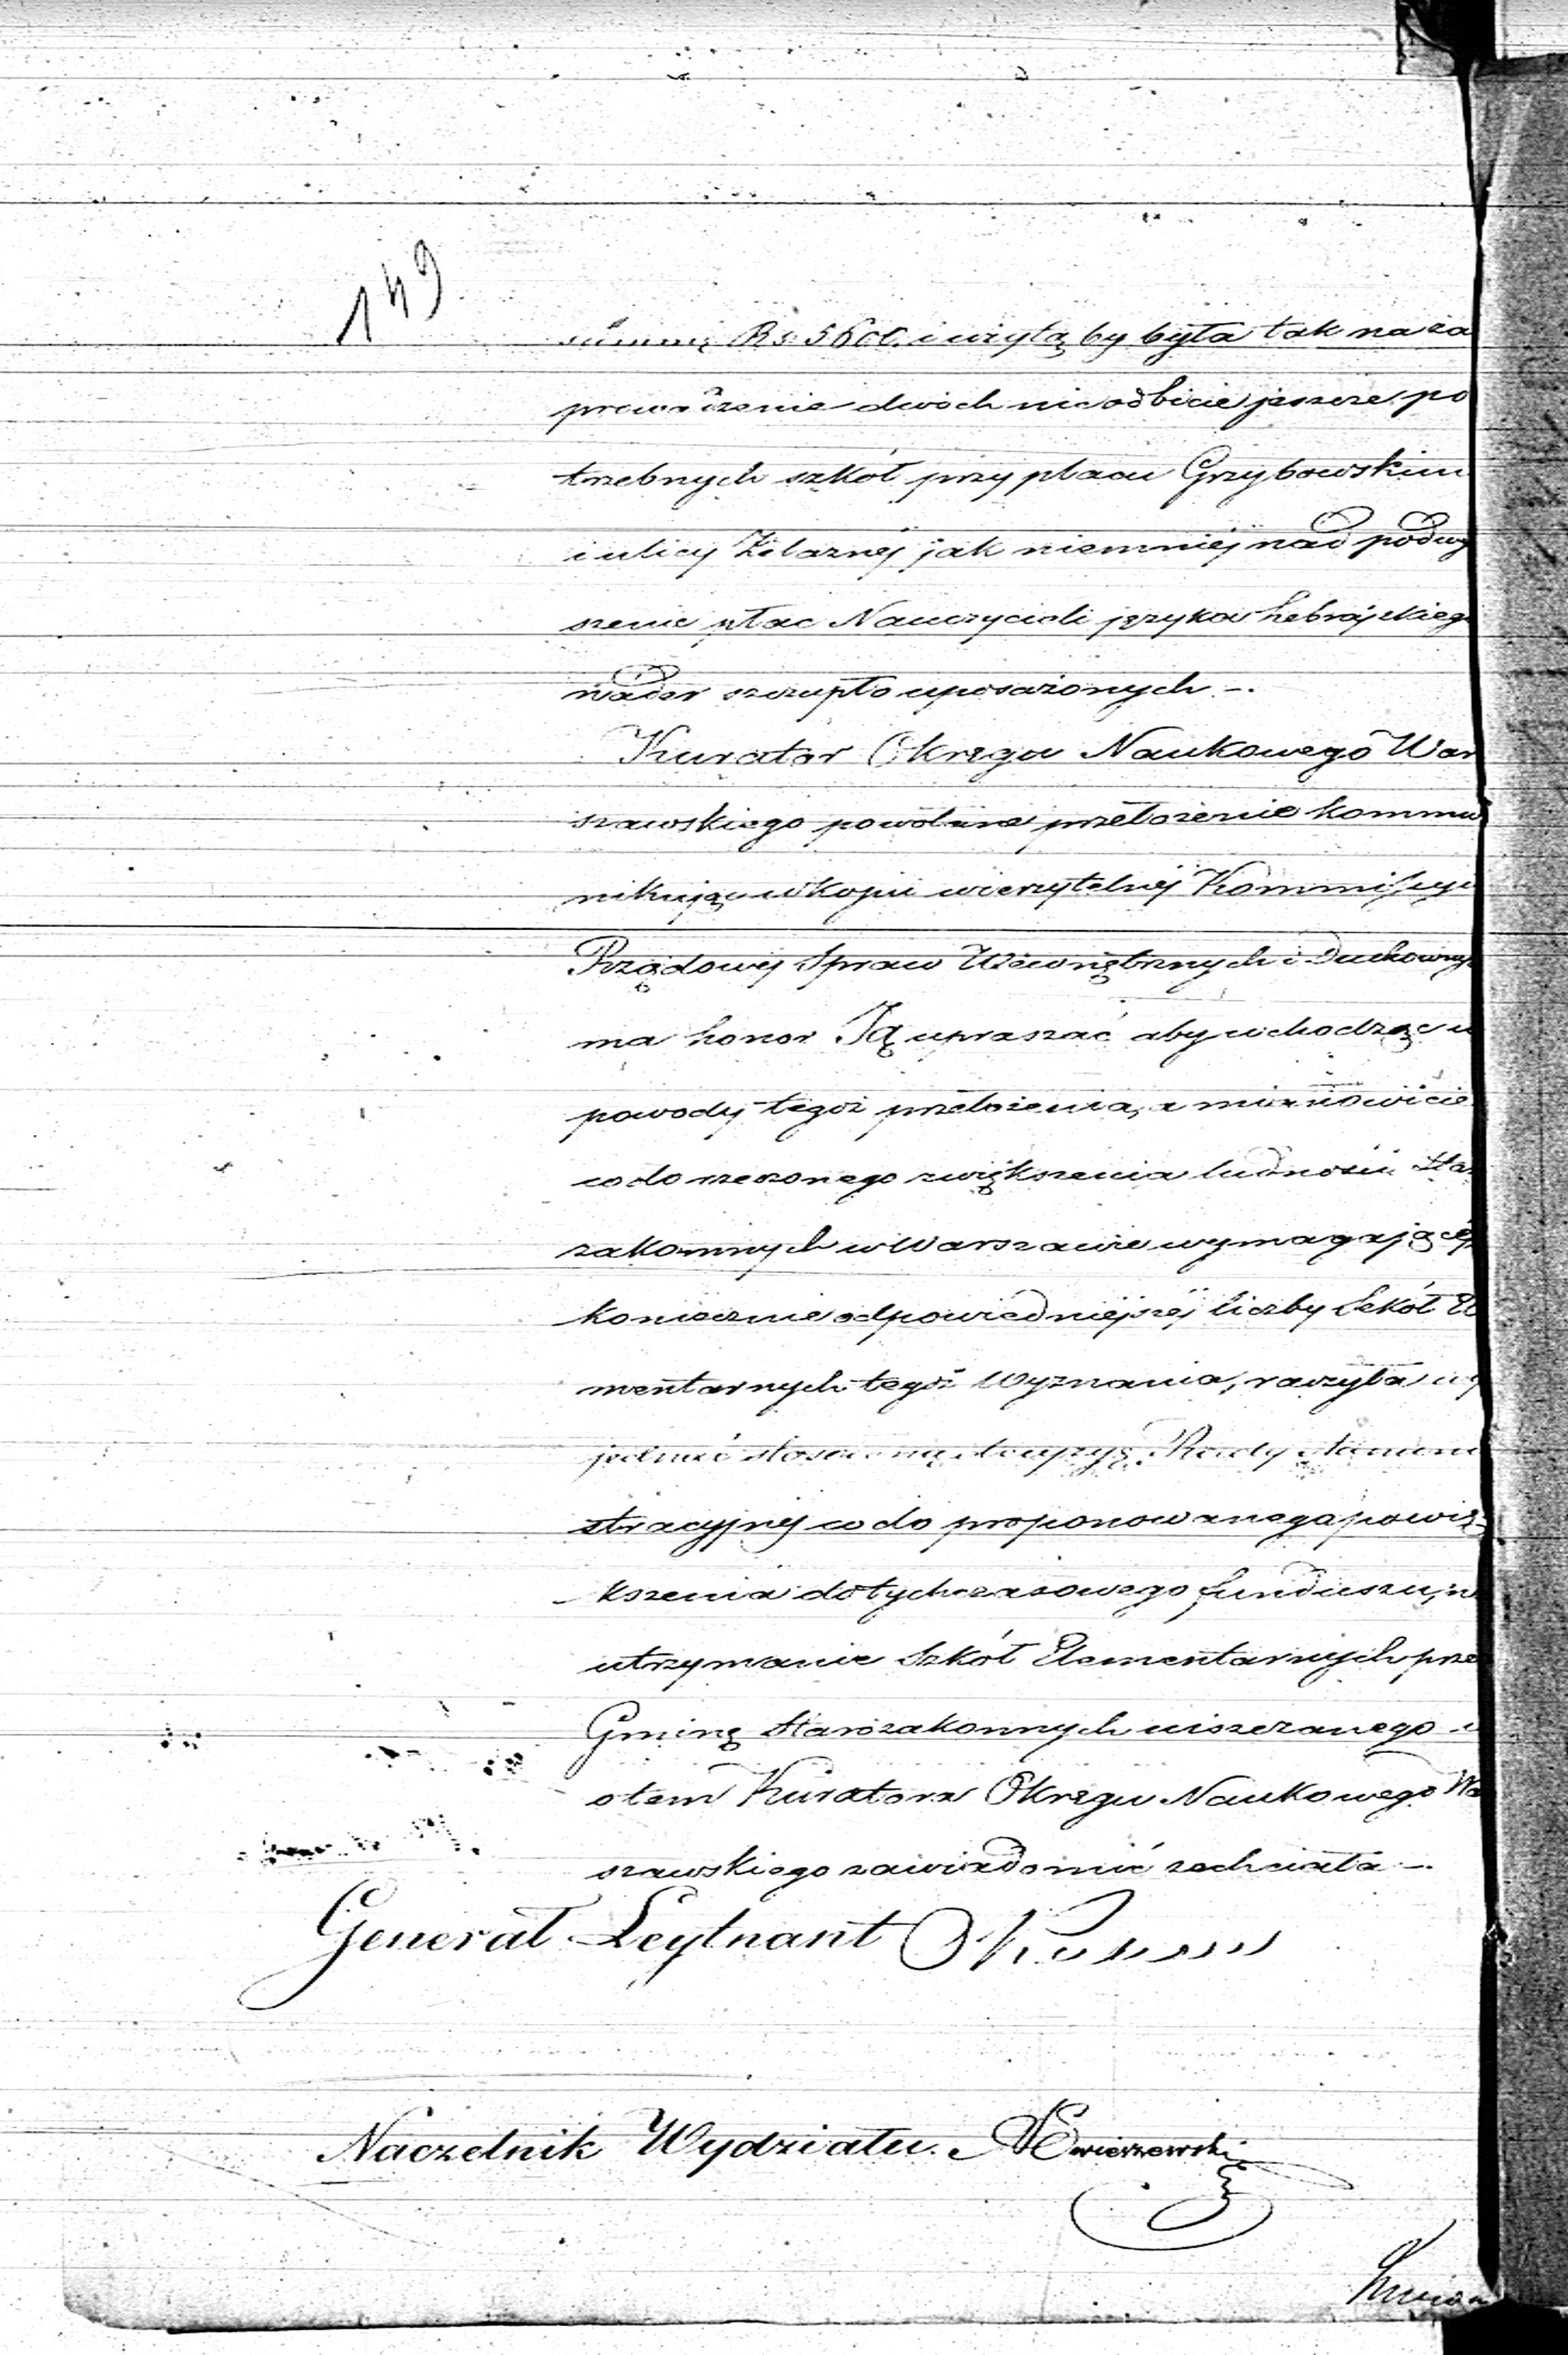 149
summę Rs: 5600. i użytą by była tak na za
prowadzenie dwóch nieodbicie jeszcze po
trzebnych szkół przy placu Grzybowskim
i ulicy Żelaznéj jak niemniéj nad podwy
szenie płac Nauczycieli języka hebrajskieg
nader szczupło uposażonych –.
Kurator Okręgu Naukowego War
szawskiego powołane przełożenie kommu
nikując w kopii wierzytelnéj Kommissyi
Rządowéj Spraw Wewnętrznych i Duchownyc
ma honor Ją upraszać aby wchodząc w
powody tegoż przełożenia, a mianowicie
co do rzeczonego zwiększenia ludności Sta
zakonnych w Warszawie wymagającéj
koniecznie odpowiedniejszéj liczby Szkół El
mentarnych tegoż Wyznania, raczyła wy
jednać stosowną decyzyę Rady Admini
stracyjnéj co do proponowanego powię
kszenia dotychczasowego funduszu, n
utrzymanie Szkół Elementarnych prze
Gminę Starozakonnych uiszczanego i
o tem Kuratora Okręgu Naukowego Wa
szawskiego zawiadomić zechciała –.
Generał Leytnant
Naczelnik Wydziału.